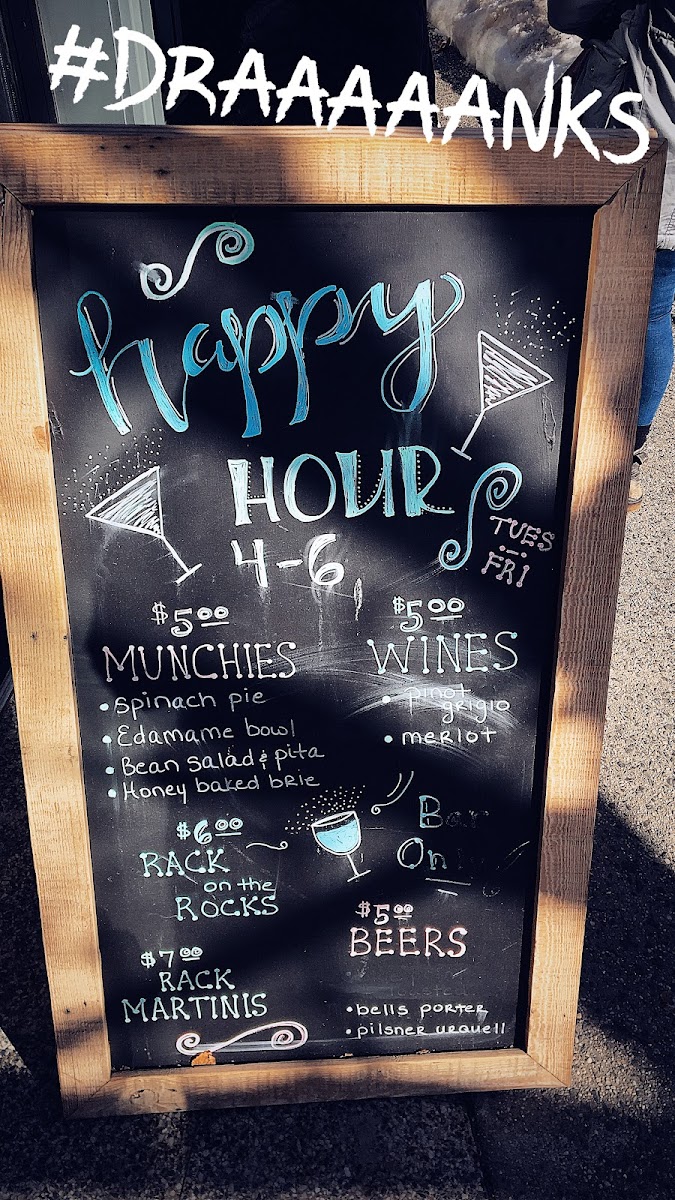 #DRAAAAAANKS
happy
HOUR
4-6
TUES
-
FRI
$5.00
MUNCHIES
• Spinach pie
• Edamame bowl
• Bean salad & pita
• Honey baked brie
$5.00
WINES
• pinot
grigio
• merlot
$6.00
RACK
on the
ROCKS
Bar
Only
$7.00
RACK
MARTINIS
$5.00
BEERS
• bells porter
• pilsner urquell